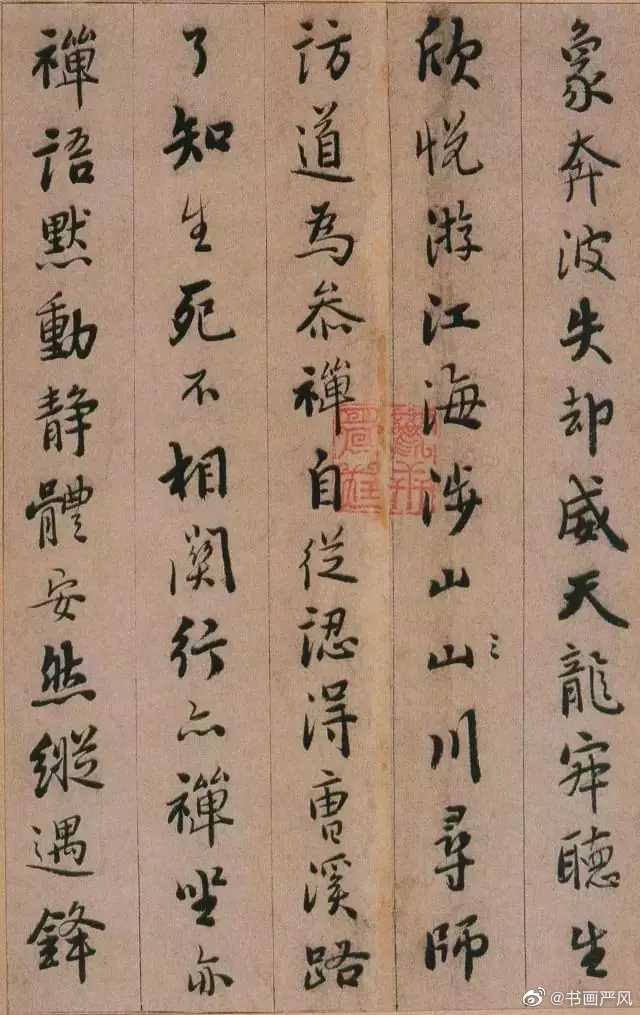 象奔波失却威天龍寂聽生
欣悅游江海涉山山川尋師
訪道為參禪自從認得曹溪路
了知生死不相關行亦禪坐亦
禪語默動靜體安然縱遇鋒
@书画严风